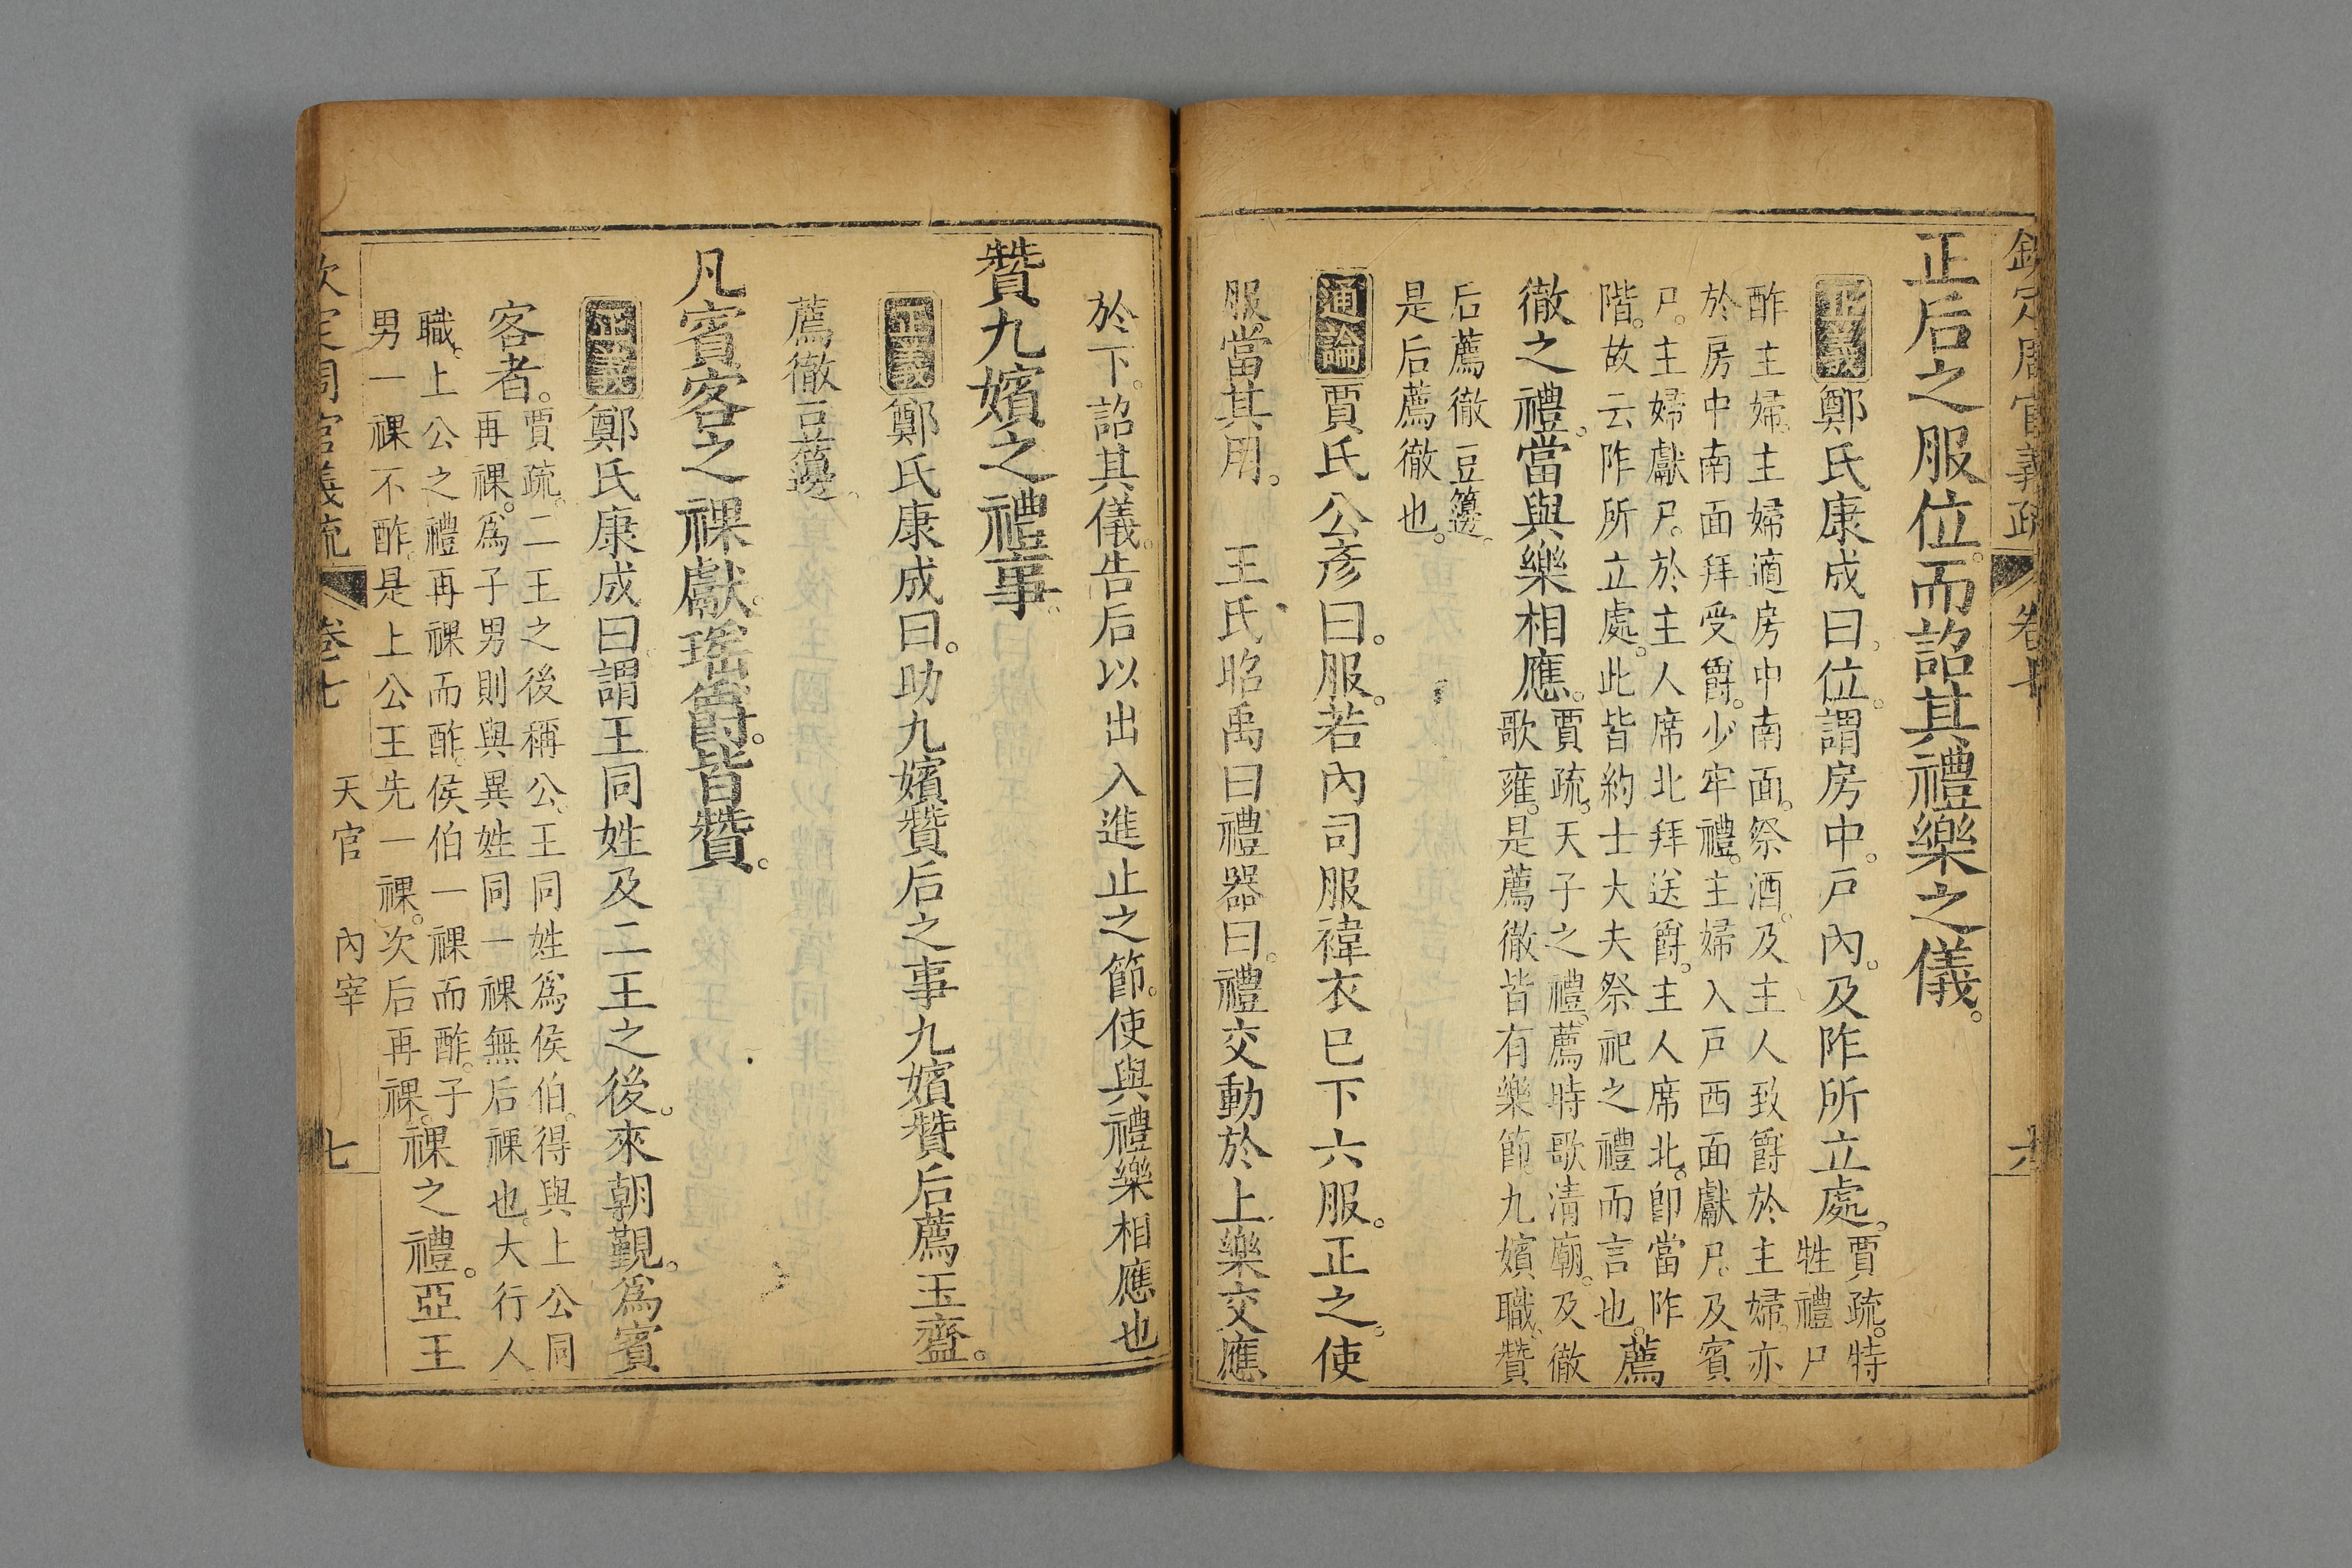 欽定周官義疏 卷七 六
正后之服位。而詔其禮樂之儀。
正義鄭氏康成曰。位。謂房中。戸內。及阼所立處。賈疏。特
牲禮尸
酢主婦。主婦適房中南面。祭酒。及主人致爵於主婦。亦
於房中南面拜受爵。少牢禮。主婦入戸西面獻尸。及賓
尸。主婦獻尸。於主人席北拜送爵。主人席北。卽當阼
階。故云阼所立處。此皆約士大夫祭祀之禮而言也。薦
徹之禮。當與樂相應。賈疏。天子之禮。薦時歌清廟。及徹
歌雍。是薦徹皆有樂節。九嬪職。贊
后薦徹豆籩。
是后薦徹也。
通論賈氏公彥曰。服。若內司服褘衣已下六服。正之。使
服當其用。 王氏昭禹曰禮器曰。禮交動於上。樂交應
於下。詔其儀。告后以出入進止之節。使與禮樂相應也
贊九嬪之禮事。
正義鄭氏康成曰。助九嬪贊后之事九嬪贊后薦玉齍。
薦徹豆籩。
凡賓客之祼獻。瑤爵。皆贊。
正義鄭氏康成曰謂王同姓及二王之後。來朝覲。爲賓
客者。賈疏。二王之後稱公。王同姓爲侯伯。得與上公同
再祼。爲子男則與異姓同一祼無后祼也。大行人
職。上公之禮再祼而酢。侯伯一祼而酢。子
男一祼不酢。是上公王先一祼。次后再祼。祼之禮。亞王
欽定周官義疏 卷七 天官 內宰 七